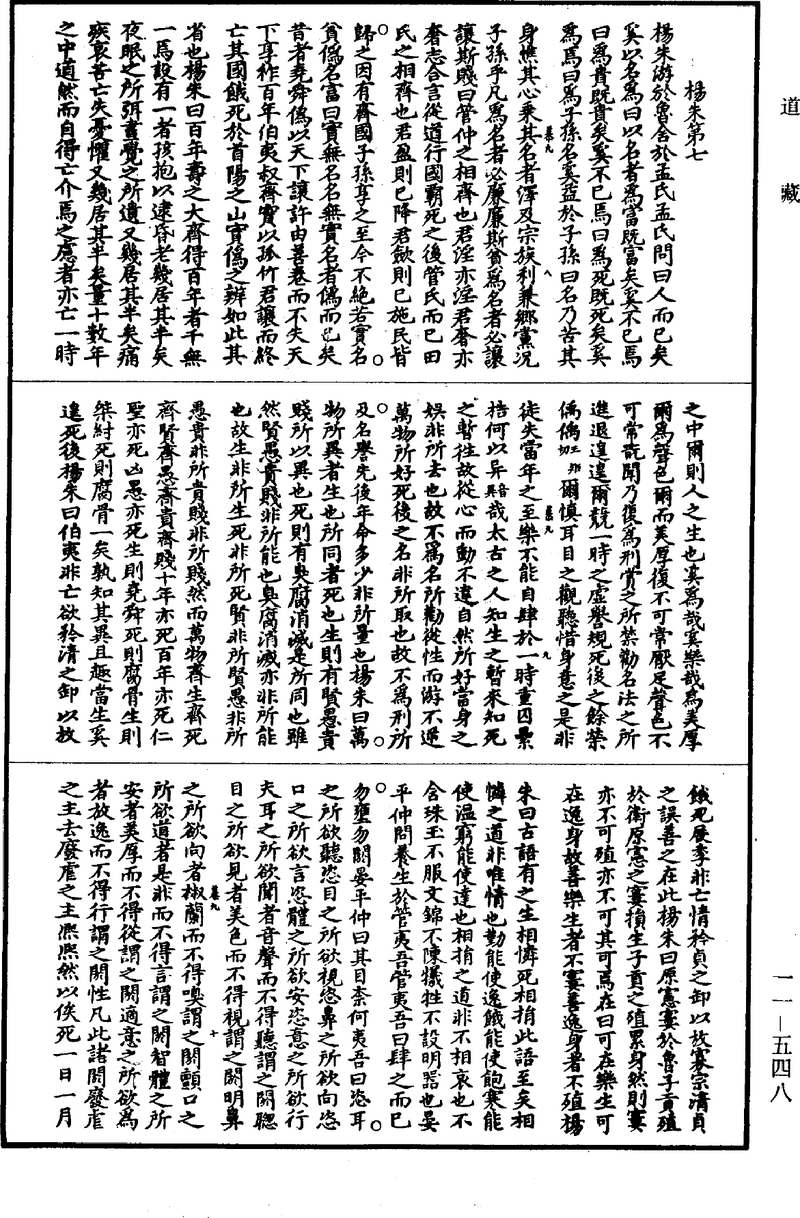 道藏
一一—五四八
楊朱第七
楊朱游於魯舍於孟氏孟氏問曰人而已矣
奚以名爲曰以名者爲富既富矣奚不已焉
曰爲貴既貴矣奚不已焉曰爲死既死矣奚
爲焉曰爲子孫名奚益於子孫曰名乃苦其
身燋其心乘其名者澤及宗族利兼鄉黨況
子孫乎凡爲名者必廉廉斯貧爲名者必讓
讓斯賤曰管仲之相齊也君淫亦淫君奢亦
奢志合言從道行國霸死之後管氏而已田
氏之相齊也君盈則已降君歛則已施民皆
歸之因有齊國子孫享之至今不絕若實名
貧僞名富曰實無名名無實名者僞而已矣
昔者堯舜僞以天下讓許由善卷而不失天
下享祚百年伯夷叔齊實以孤竹君讓而終
亡其國餓死於首陽之山實僞之辨如此其
省也楊朱曰百年壽之大齊得百年者千無
一焉設有一者孩抱以逮昏老幾居其半矣
夜眠之所弭晝覺之所遺又幾居其半矣痛
疾哀苦亡失憂懼又幾居其半矣量十數年
之中逌然而自得亡介焉之慮者亦亡一時
之中爾則人之生也奚爲哉奚樂哉爲美厚
爾爲聲色爾而美厚復不可常厭足聲色不
可常翫聞乃復爲刑賞之所禁勸名法之所
進退遑遑爾競一時之虛譽規死後之餘榮
偊偊爾慎耳目之觀聽惜身意之是非
徒失當年之至樂不能自肆於一時重囚纍
梏何以异哉太古之人知生之暫來知死
之暫往故從心而動不違自然所好當身之
娛非所去也故不爲名所勸從性而游不逆
萬物所好死後之名非所取也故不爲刑所
及名譽先後年命多少非所量也楊朱曰萬
物所異者生也所同者死也生則有賢愚貴
賤所以異也死則有臭腐消滅是所同也雖
然賢愚貴賤非所能也臭腐消滅亦非所能
也故生非所生死非所死賢非所賢愚非所
愚貴非所貴賤非所賤然而萬物齊生齊死
齊賢齊愚齊貴齊賤十年亦死百年亦死仁
聖亦死凶愚亦死生則堯舜死則腐骨生則
桀紂死則腐骨腐骨一矣孰知其異且趣當生奚
遑死後楊朱曰伯夷非亡欲矜清之卸以放
餓死展季非亡情矜貞之卸以放寡宗清貞
之誤善之在此楊朱曰原憲窶於魯子貢殖
於衛原憲之窶損生子貢之殖累身然則窶
亦不可殖亦不可其可焉在曰可在樂生可
在逸身故善樂生者不窶善逸身者不殖楊
朱曰古語有之生相憐死相捐此語至矣相
憐之道非唯情也勤能使逸餓能使飽寒能
使溫窮能使達也相捐之道非不相哀也不
含珠玉不服文錦不陳犧牲不設明器也晏
平仲問養生於管夷吾管夷吾曰肆之而已
勿壅勿閼晏平仲曰其目柰何夷吾曰恣耳
之所欲聽恣目之所欲視恣鼻之所欲向恣
口之所欲言恣體之所欲安恣意之所欲行
夫耳之所欲聞者音聲而不得聽謂之閼聰
目之所欲見者美色而不得視謂之閼明鼻
之所欲向者椒蘭而不得嗅謂之閼顫口之
所欲道者是非而不得言謂之閼智體之所
欲安者美厚而不得從謂之閼適意之所欲爲
者放逸而不得行謂之閼性凡此諸閼廢虐
之主去廢虐之主熙熙然以俟死一日一月